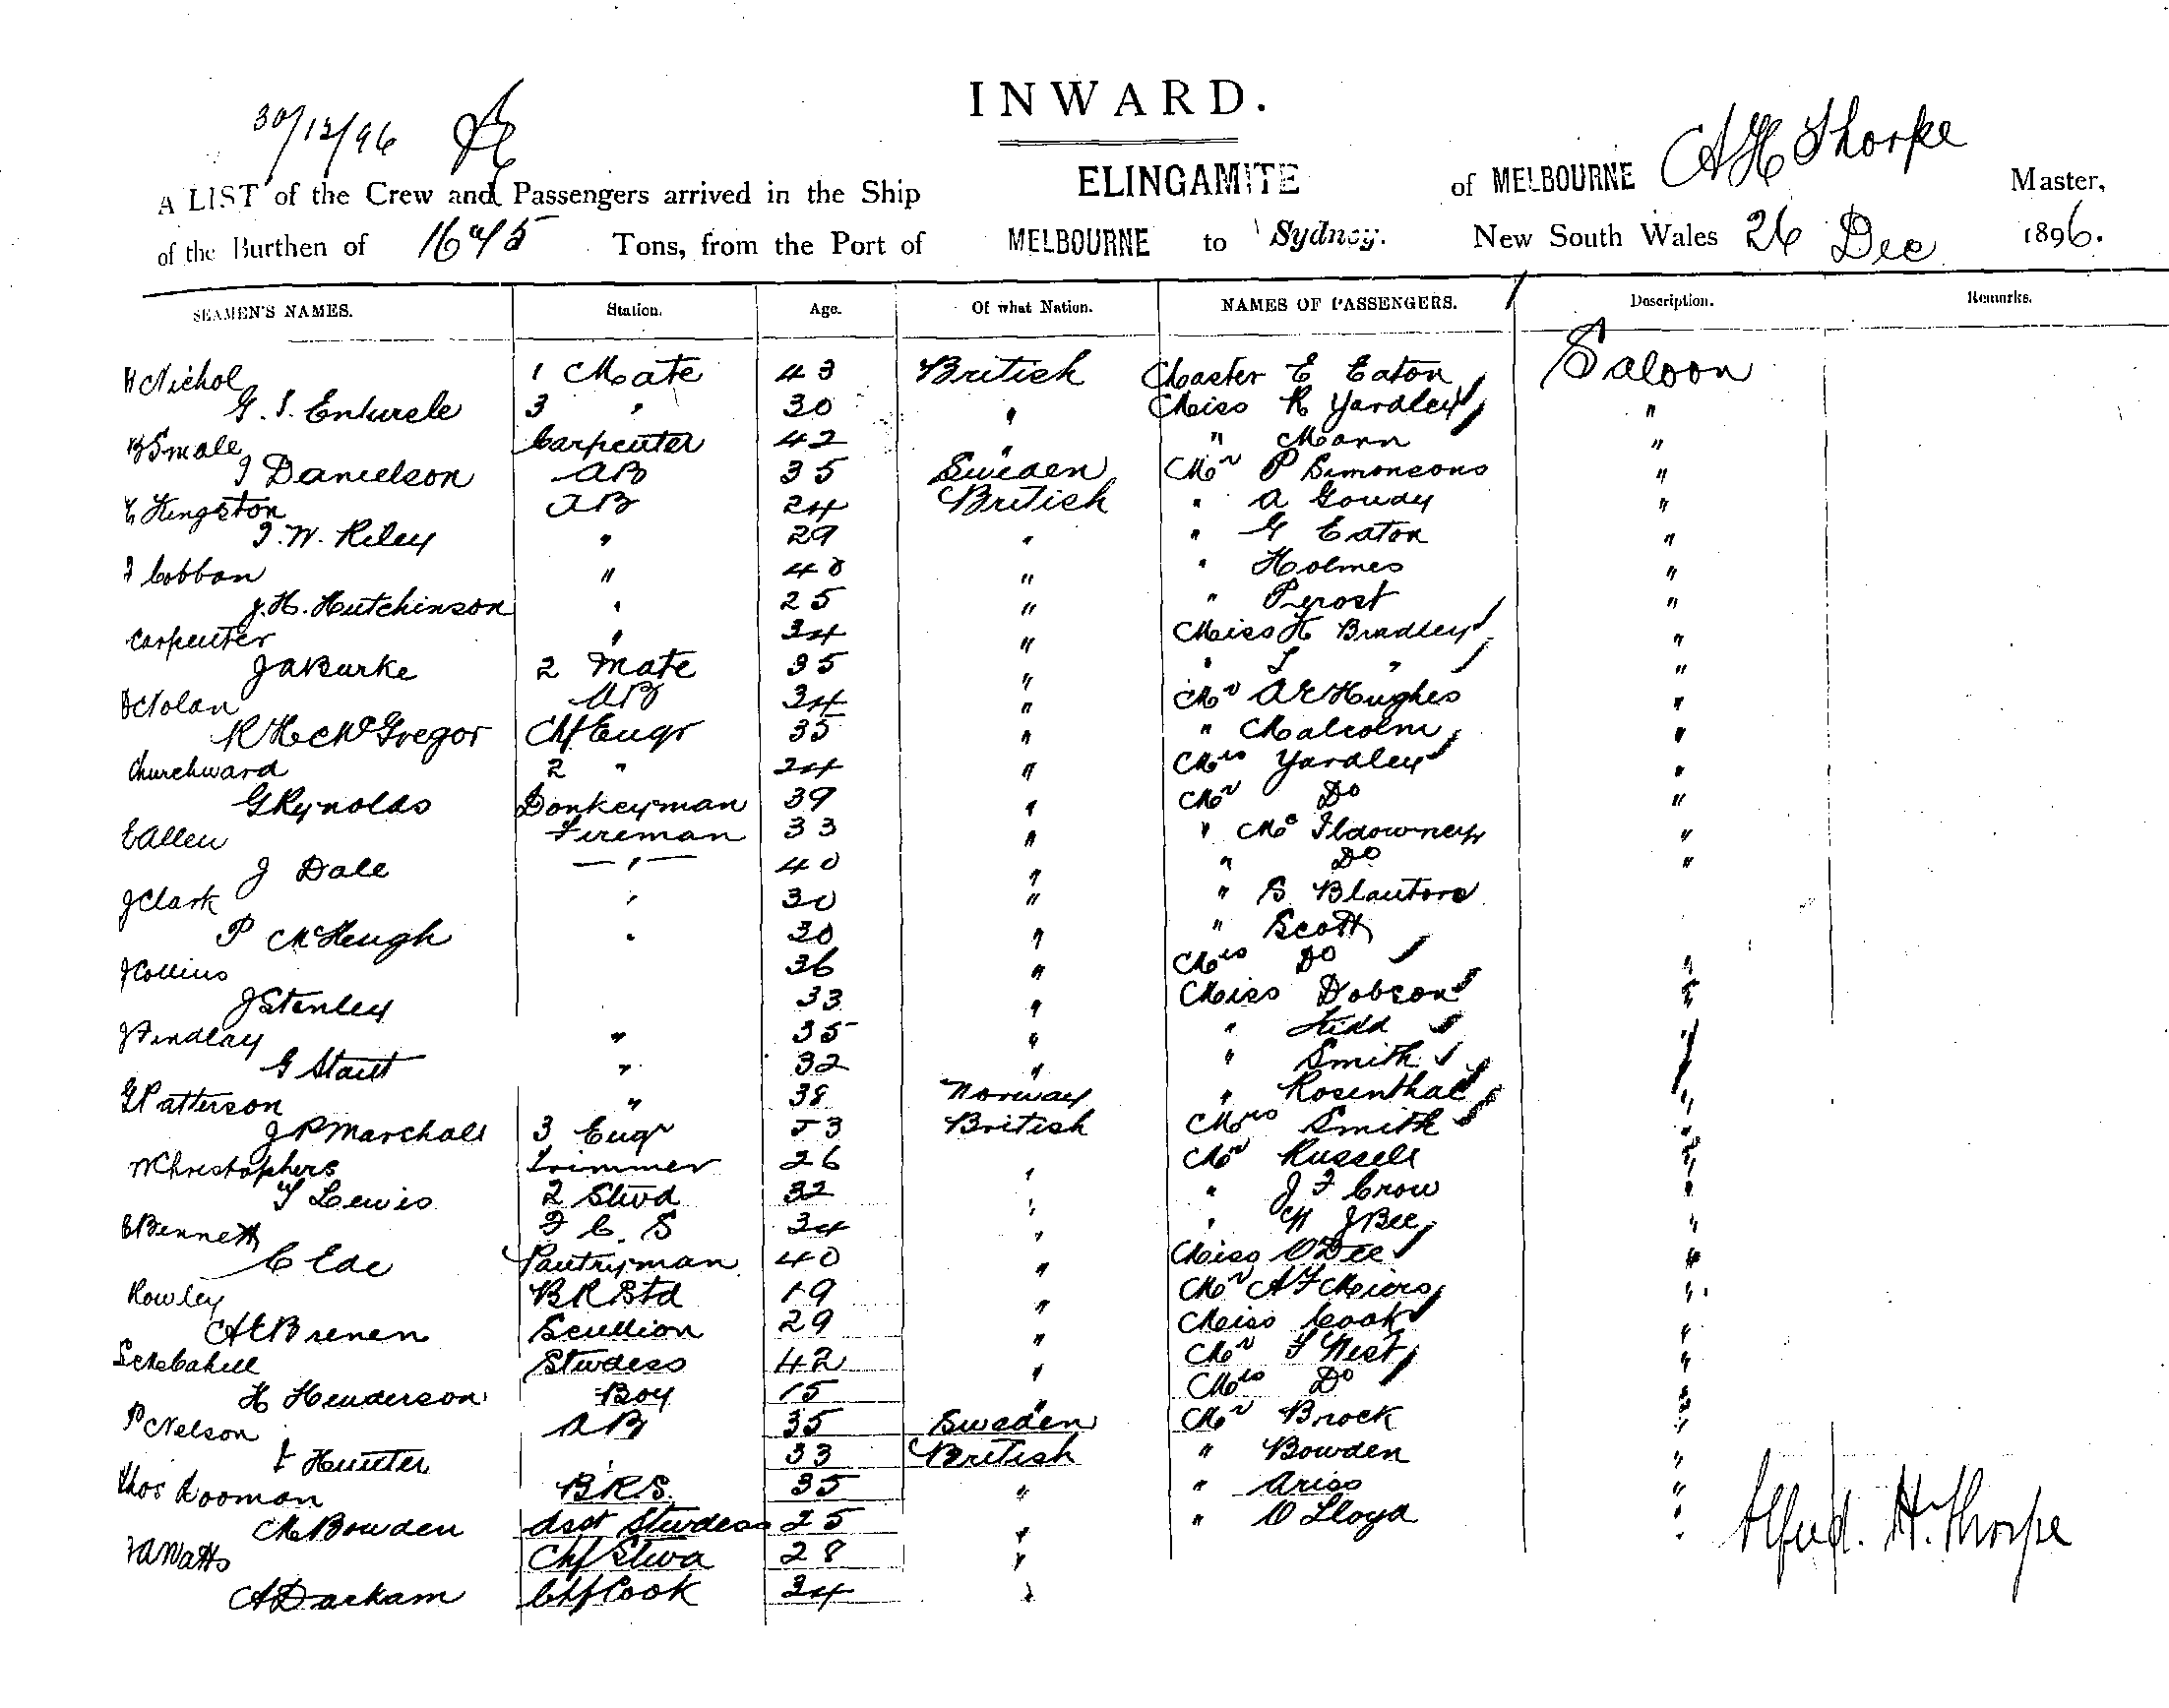 INWARD.
30/12/96
A LIST of the Crew and Passengers arrived in the Ship ELINGAMITE of MELBOURNE A H Thorpe Master,
of the Burthen of 1675 Tons, from the Port of MELBOURNE to Sydney. New South Wales 26 Dec 1896.
SEAMEN'S NAMES. Station. Age. Of what Nation. NAMES OF PASSENGERS. Description. Remarks.
Nichol 1 Mate 43 British Master E Eaton Saloon
G. S. 3 " 30 " Miss R Yardley "
Smale Carpenter 42 " " Mann "
J Danielson AB 35 Sweden Mr P Simonsons "
E Kingston AB 24 British " A Goudy "
J. W. Riley " 29 " " G Eaton "
J Cobban " 48 " " Holmes "
J. H. Hutchinson " 25 " " "
Carpenter " 34 " Miss H Bradley "
J A Burke 2 Mate 35 " " L " "
D Nolan AB 34 " Mr A E Hughes "
R H McGregor Chf Engr 35 " " Malcolm "
Churchward 2 " 24 " Mrs Yardley "
G Rynolds Donkeyman 39 " Mr Do "
E Allen Fireman 33 " " "
J Dale — " — 40 " " Do "
J Clark " 30 " " S
P McHeugh " 30 " " Scott
J Collins 36 " Mrs Do "
J Stenley 33 " Miss Dobson "
J Findlay " 35 " " Kidd "
G " 32 " " Smith "
G Patterson " 38 Norway " Rosenthal "
J P Marshall 3 Engr 53 British Mrs Smith "
W Christophers Trimmer 26 " Mr Russell "
T Lewis 2 Stwd 32 " " J F Crow "
E Bennett F C. S 34 " " J Bee "
C Ede Pantryman 40 " Miss O'Dee "
Rowley B R Std 19 " Mr A F "
A E Brenen Scullion 29 " Miss Cook "
S McCahill Stwdess 42 " Mr F West "
H Henderson Boy 15 " Mrs Do "
P Nelson AB 35 Sweden Mr Brock "
J Hunter " 33 British " Bowden "
Thos Looman B.R.S. 35 " " Ariss "
M Bowden Asst Stwdess 25 " " O Lloyd "
Watts Chf Stwd 28 "
A Darkam Chf Cook 34 "
Alfred. H. Thorpe